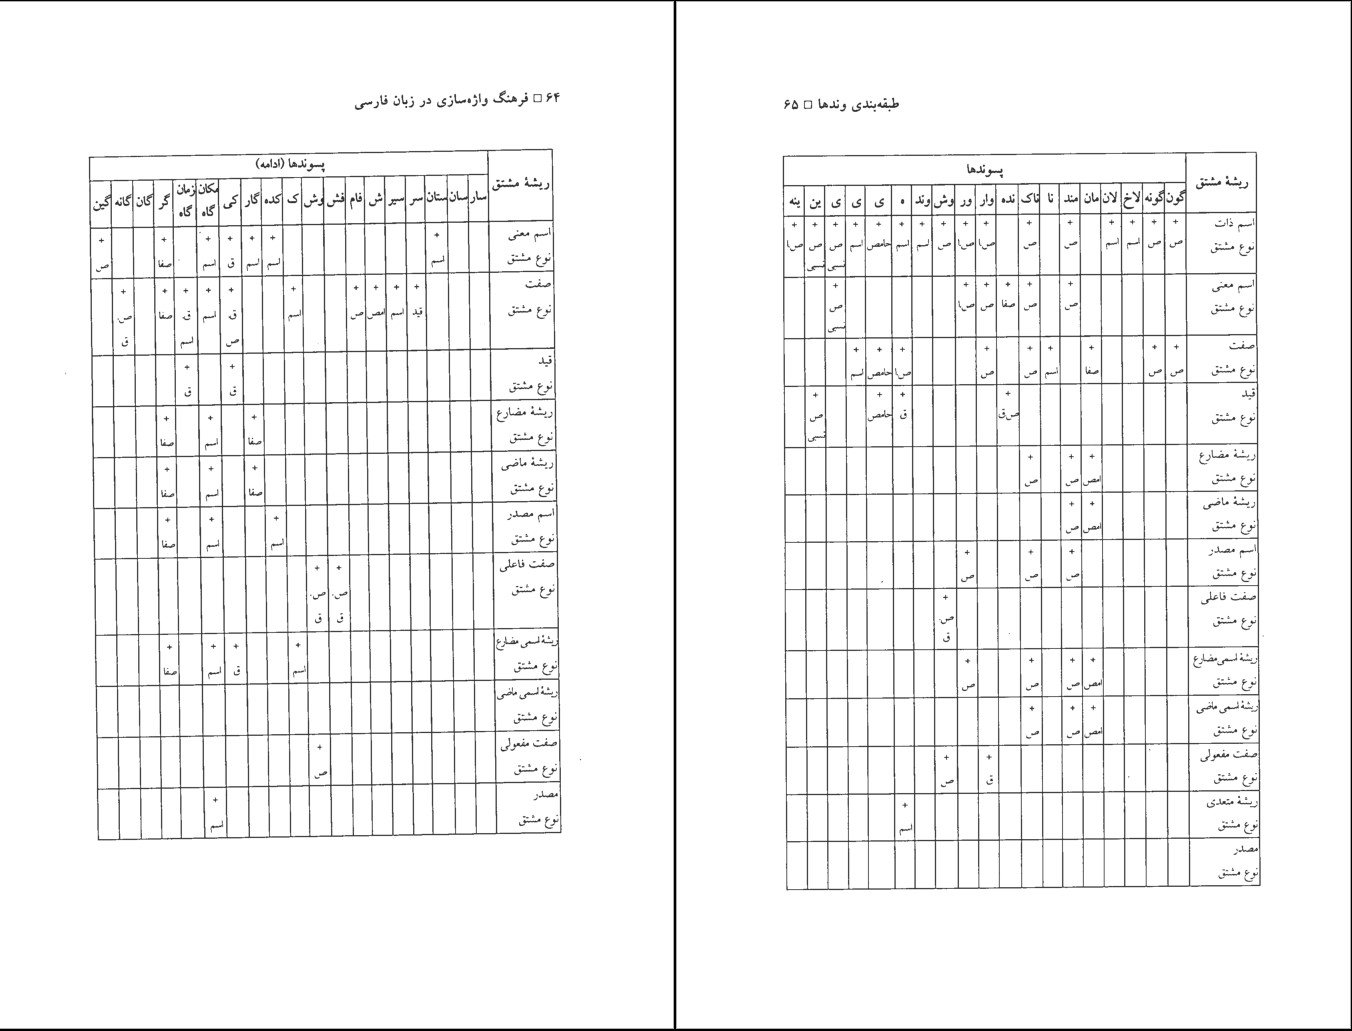 ۶۴ □ فرهنگ واژه‌سازی در زبان فارسی
ریشهٔ مشتق پسوندها (ادامه)
سار سان ستان سر سیر ش فام فش وش ک کده گار کی مکان گاه زمان گاه گر گان گانه گین
اسم معنی + + + + + + +
نوع مشتق اسم اسم اسم ق اسم صفا ص
صفت + + + + + + + + + +
نوع مشتق قید اسم امص ص اسم ق. اسم ق. صفا ص.
ص اسم ق
قید + +
نوع مشتق ق ق
ریشهٔ مضارع + + +
نوع مشتق صفا اسم صفا
ریشهٔ ماضی + + +
نوع مشتق صفا اسم صفا
اسم مصدر + + +
نوع مشتق اسم اسم صفا
صفت فاعلی + +
نوع مشتق ص. ص.
ق ق
ریشهٔ اسمی مضارع + + + +
نوع مشتق اسم ق اسم صفا
ریشهٔ اسمی ماضی
نوع مشتق
صفت مفعولی +
نوع مشتق ص
مصدر +
نوع مشتق اسم
طبقه‌بندی وندها □ ۶۵
ریشهٔ مشتق پسوندها
گون گونه لاخ لان مان مند نا ناک نده وار ور وش وند ه ی ی ی ین ینه
اسم ذات + + + + + + + + + + + + + + + +
نوع مشتق ص ص اسم اسم ص ص ص/ا ص/ا ص اسم اسم حامص اسم ص ص ص/ا
نسبی نسبی
اسم معنی + + + + + +
نوع مشتق ص ص صفا ص ص/ا ص
نسبی
صفت + + + + + + + + +
نوع مشتق ص ص صفا اسم ص ص ص/ا حامص اسم
قید + + + +
نوع مشتق ص‌ق ق حامص ص
نسبی
ریشهٔ مضارع + + +
نوع مشتق امص ص ص
ریشهٔ ماضی + +
نوع مشتق امص ص
اسم مصدر + + +
نوع مشتق ص ص ص
صفت فاعلی +
نوع مشتق ص.
ق
ریشهٔ اسمی مضارع + + + +
نوع مشتق امص ص ص ص
ریشهٔ اسمی ماضی + + +
نوع مشتق امص ص ص
صفت مفعولی + +
نوع مشتق ق ص
ریشهٔ متعدی +
نوع مشتق اسم
مصدر
نوع مشتق